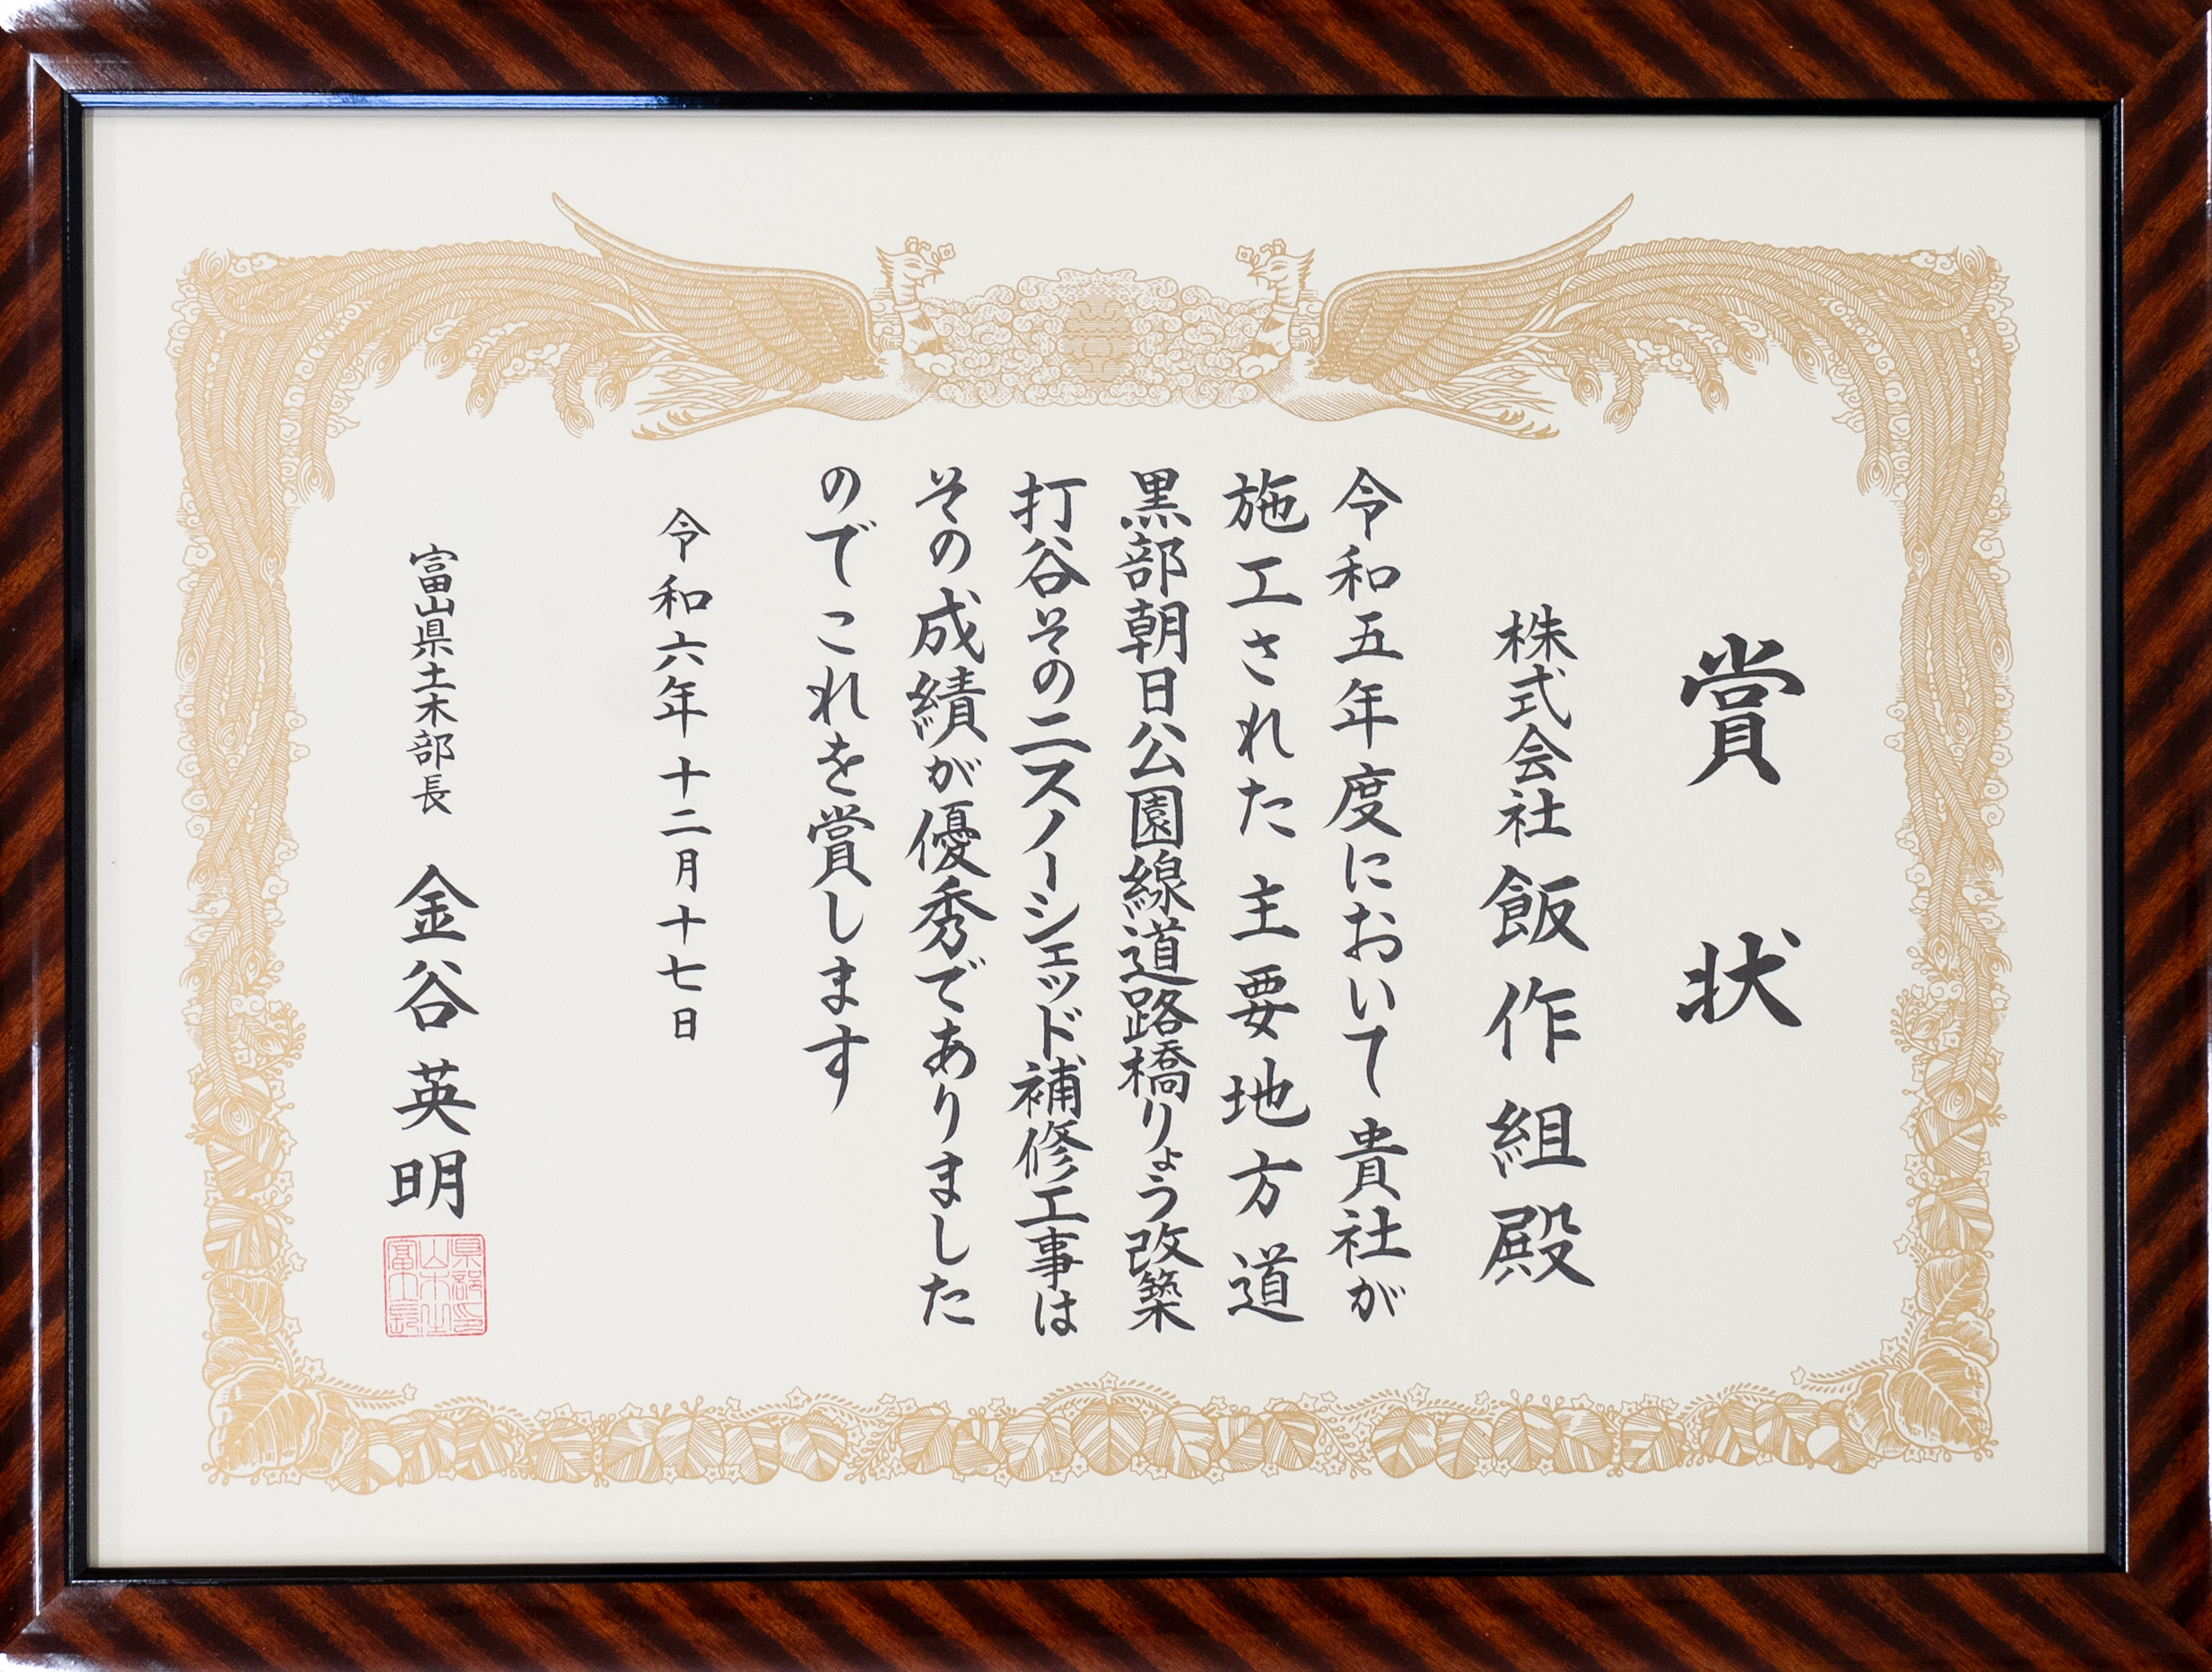 賞状
株式会社飯作組殿
令和五年度において貴社が
施工された主要地方道
黒部朝日公園線道路橋りょう改築
打谷その二スノーシェッド補修工事は
その成績が優秀でありました
のでこれを賞します
令和六年十二月十七日
富山県土木部長 金谷英明